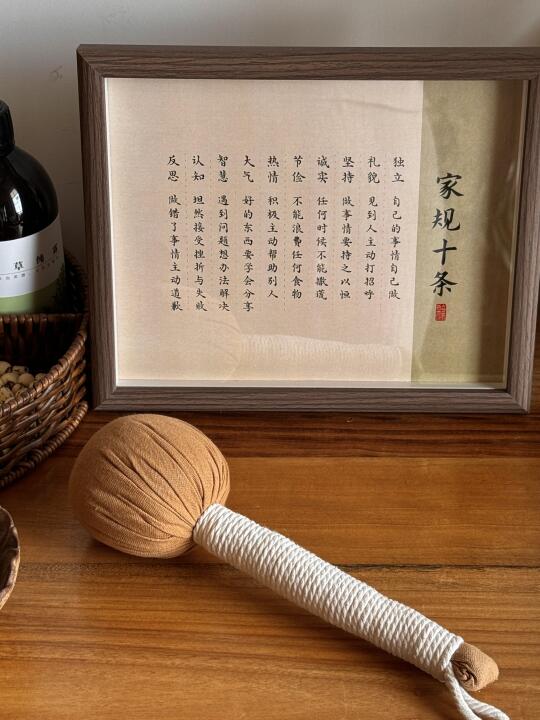 家规十条
独立 自己的事情自己做
礼貌 见到人主动打招呼
坚持 做事情要持之以恒
诚实 任何时候不能撒谎
节俭 不能浪费任何食物
热情 积极主动帮助别人
大气 好的东西要学会分享
智慧 遇到问题想办法解决
认知 坦然接受挫折与失败
反思 做错了事情主动道歉
草